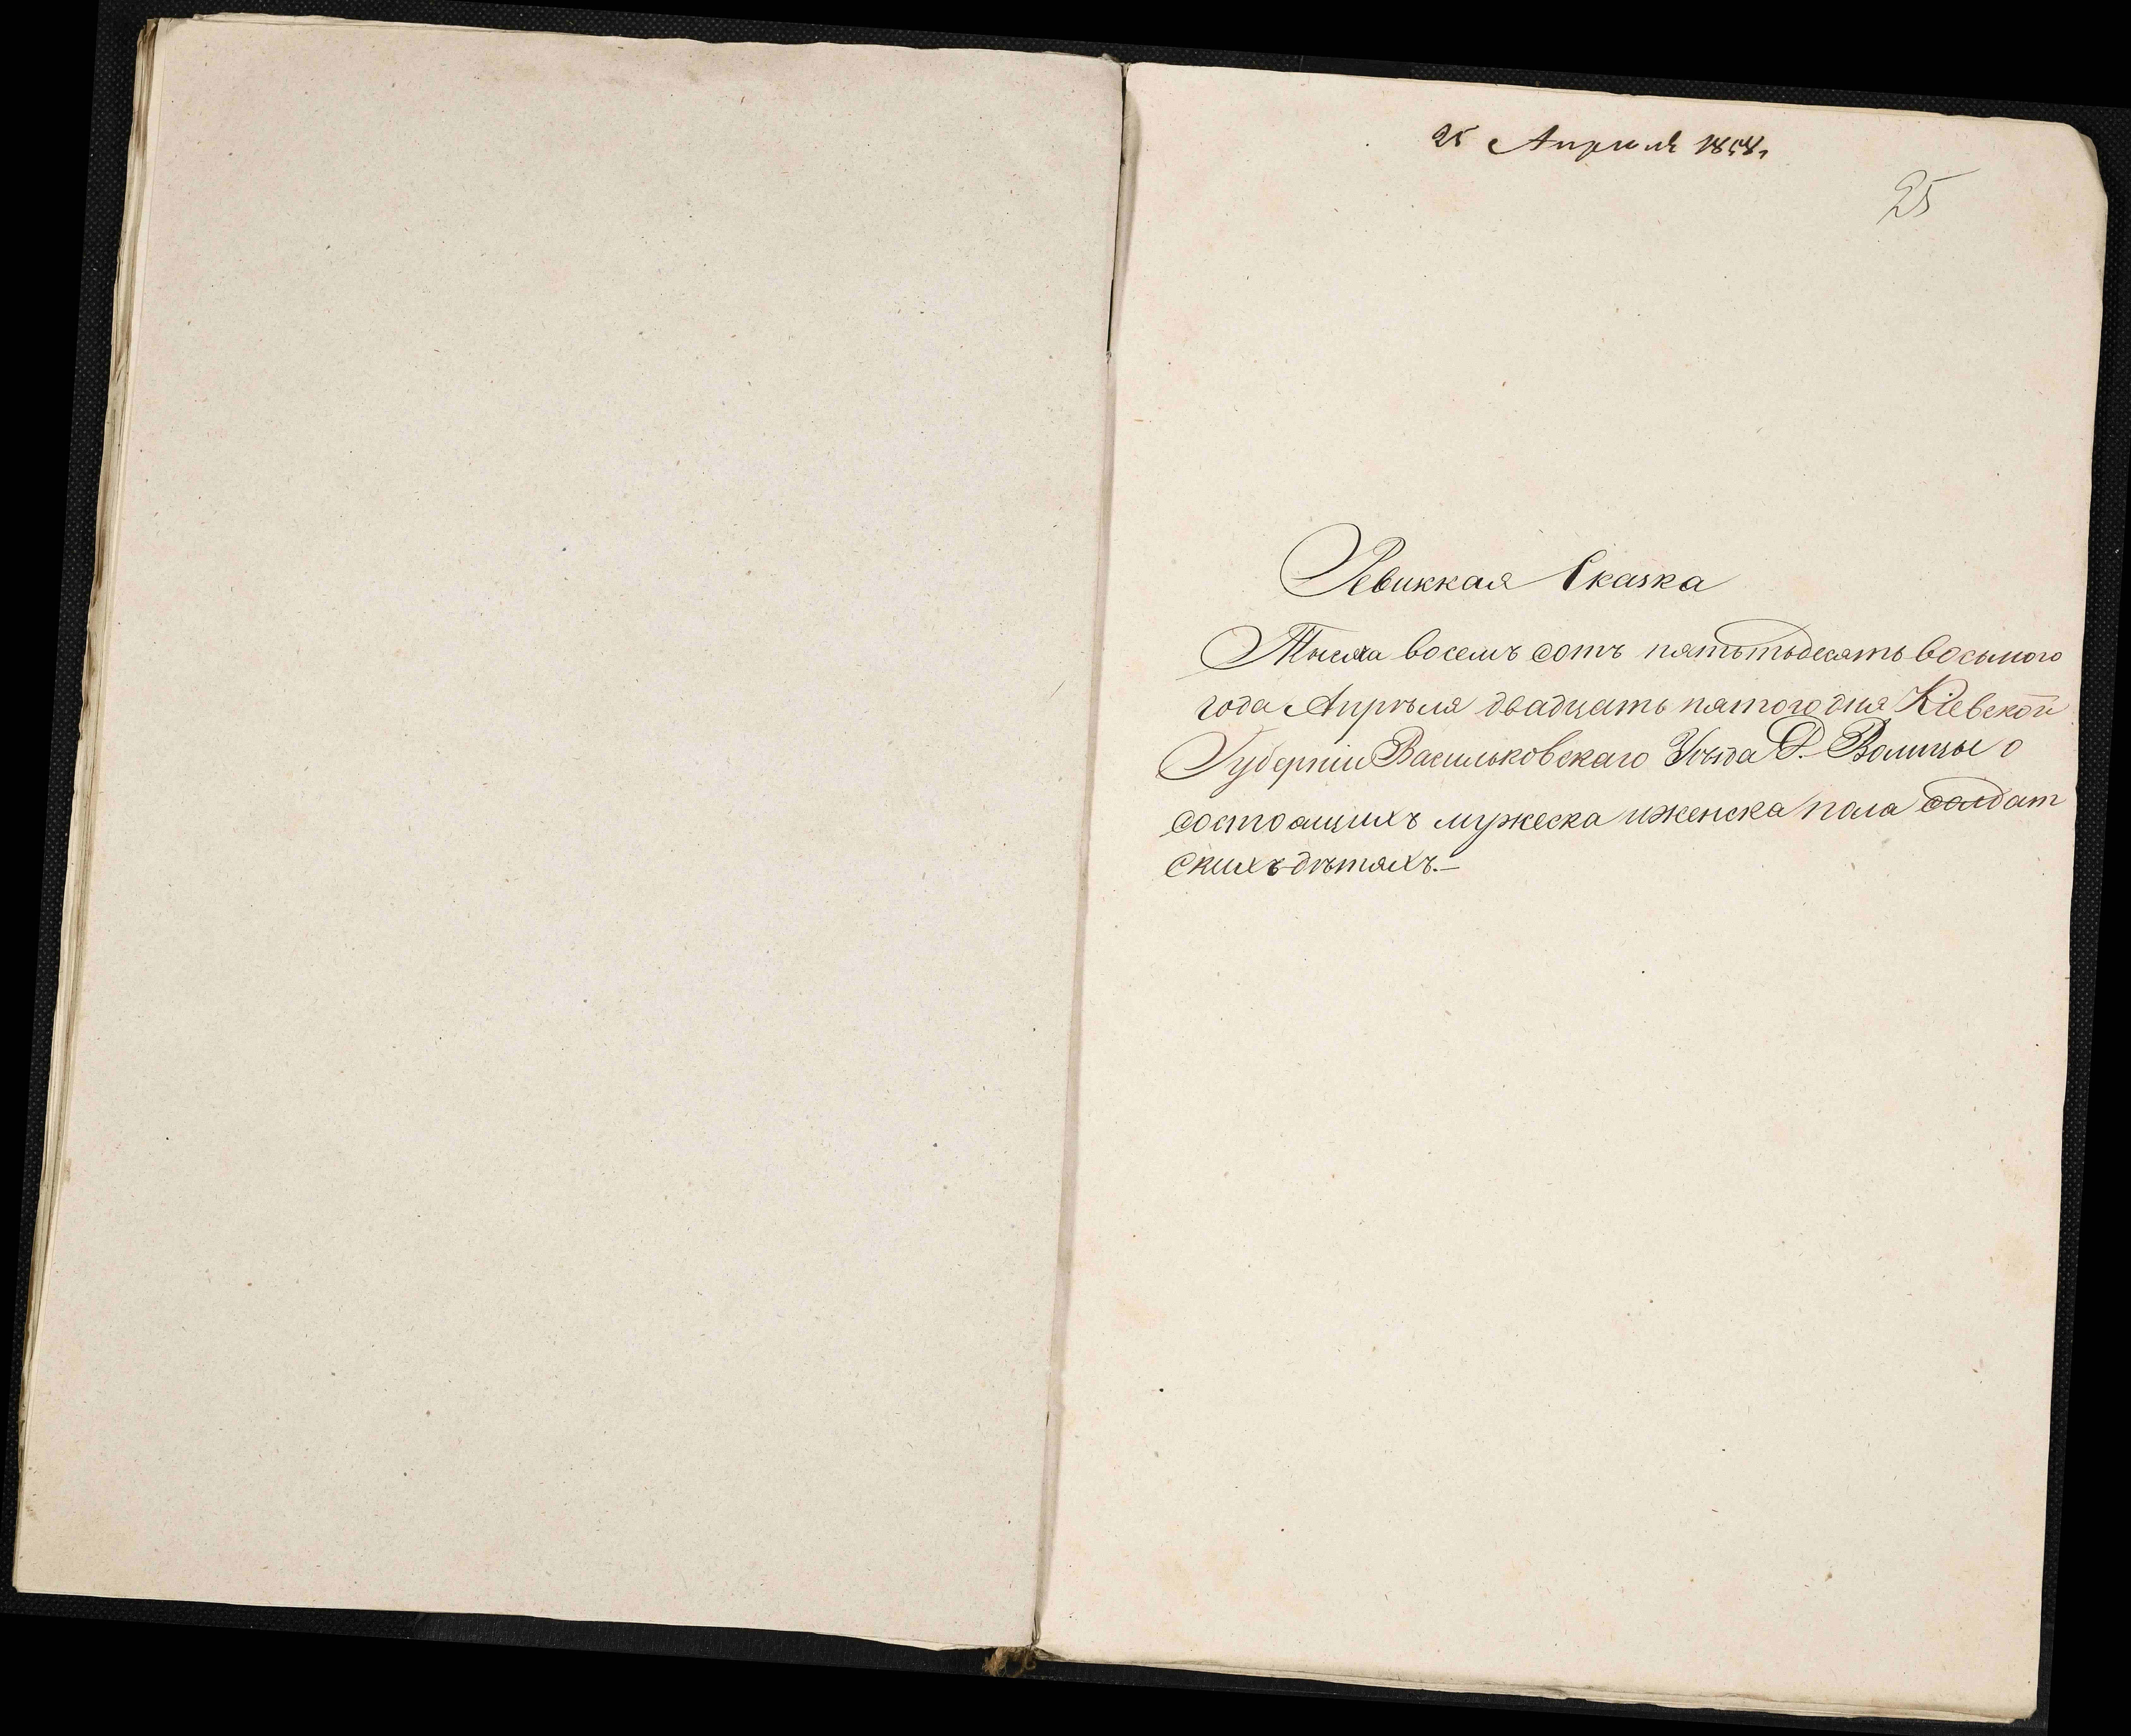 25 Апреля 1858,
25
Ревижкая Сказка
Тысяча восемъ сотъ пятьтьдесятъ восьмого
года Апрѣля двадцать пятого дня Кіевской
Губерніи Васильковскаго Уѣзда Д. Волицы о
состоащихъ мужеска и женска пола солдат
скихъ дѣтяхъ.—